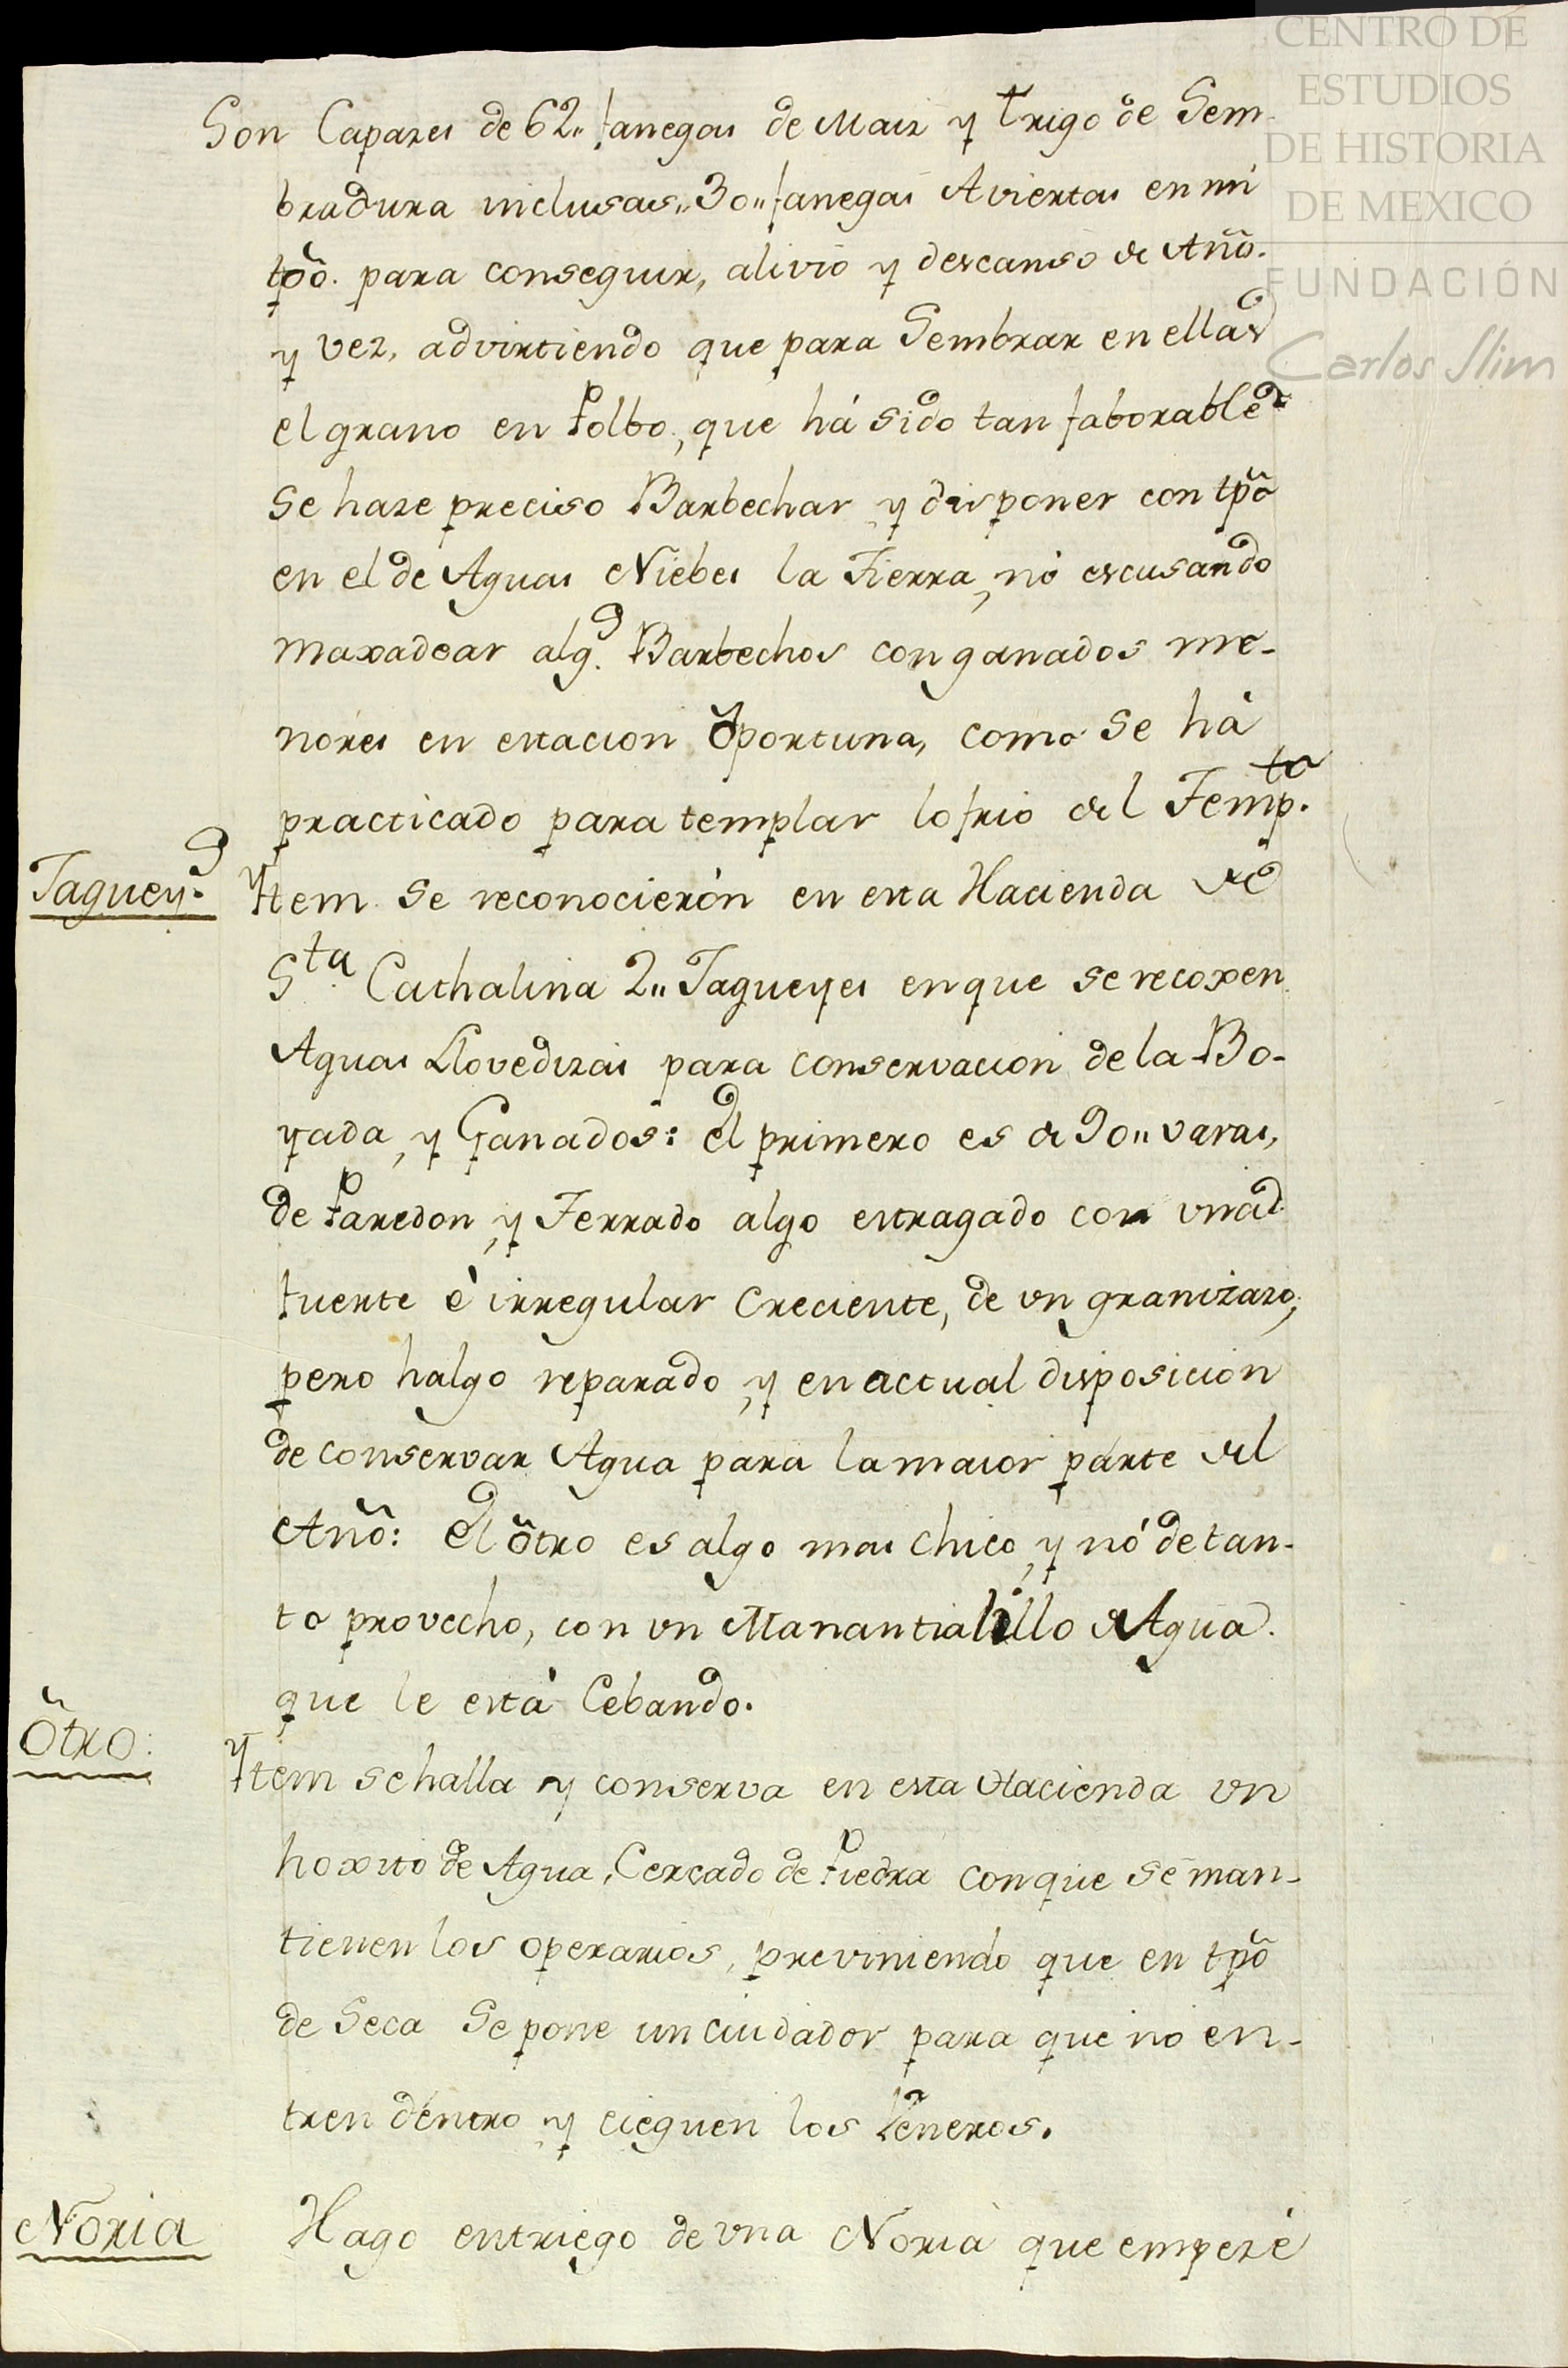 CENTRO DE
ESTUDIOS
DE HISTORIA
DE MEXICO
FUNDACIÓN
Carlos Slim
Son Capazes de 62,, fanegas de Maiz y trigo de Sem-
bradura inclusas,, 30,, fanegas Aviertas en mi
tpõ. para conseguir, alivio y descanso de Añõ.
y vez, advirtiendo que para Sembrar en ellas
el grano en Polbo, que há sido tan faborable
se haze preciso Barbechar y disponer con tpõ
en el de Aguas Niebes la Tierra, nó escusando
maxadear algs. Barbechos con ganados me-
nores en estacion õportuna, como se há
practicado para templar lo frio del Tempto.
Tagueys.
Ytem se reconocierón en esta Hacienda de
Sta. Cathalina 2,, Tagueyes en que se recoxen
Aguas Llovedizas para conservacion de la Bo-
yada, y Ganados: el primero es de 90,, varas,
de Paredon, y Terrado algo estragado con una
fuerte è irregular Creciente, de un granizazo;
pero halgo reparado, y en actual disposicion
de conservar Agua para la maior parte del
Añõ: El õtro es algo mas chico, y nó de tan-
to provecho, con un Manantialillo de Agua.
que le está Cebando.
Õtro:
Ytem se halla y conserva en esta Hacienda un
hoxito de Agua, Cercado de Piedra con que se man-
tienen los operarios, previniendo que en tpõ
de Seca Se pone un ciudador para que no en-
tren dentro y cieguen los Veneros.
Noria
Hago entriego de una Noria que empezé